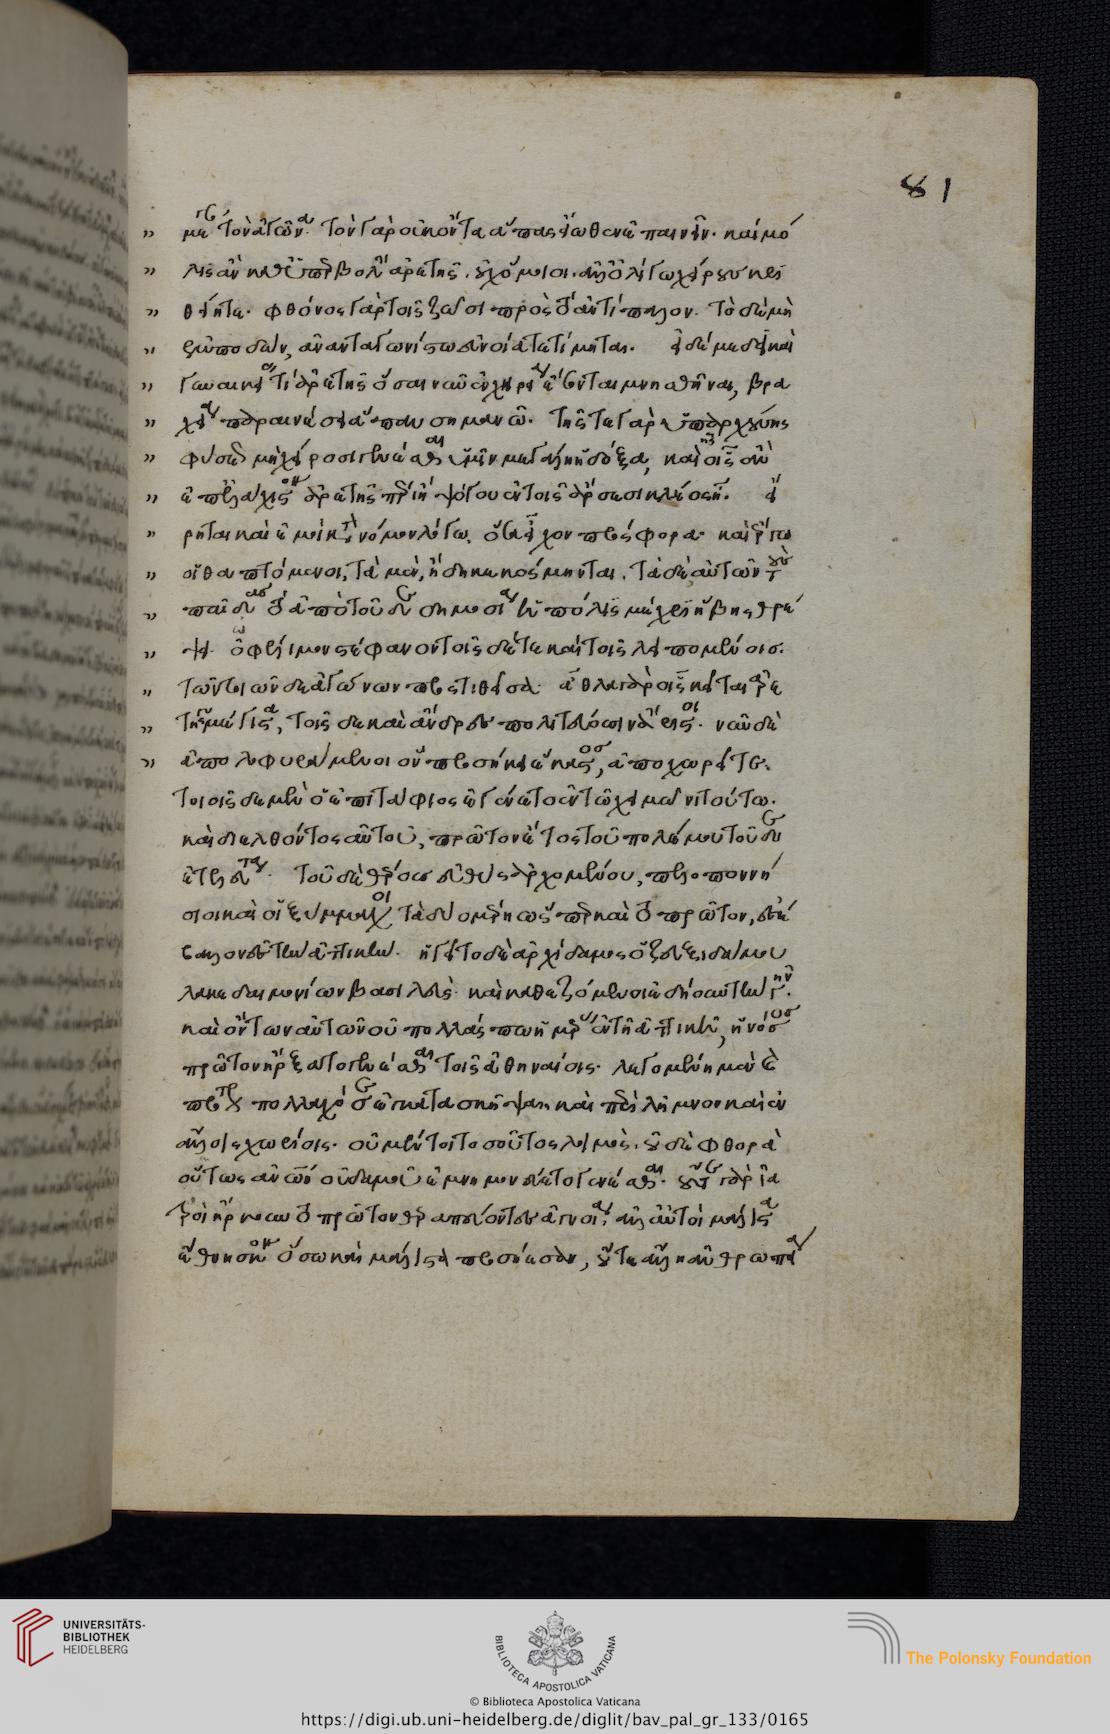 81
μέγαν τὸν ἀγῶνα. τὸν γὰρ οὐκ ὄντα ἅπας εἴωθεν ἐπαινεῖν. καὶ μό
λις ἂν καθ' ὑπερβολὴν ἀρετῆς, οὐχ ὅμοιοι, ἀλλ' ὀλίγῳ χείρους κρι
θεῖτε. φθόνος γὰρ τοῖς ζῶσι πρὸς τὸ ἀντίπαλον. τὸ δὲ μὴ
ἐμποδών, ἀνανταγωνίστῳ εὐνοίᾳ τετίμηται. εἰ δέ με δεῖ καὶ
γυναικείας τι ἀρετῆς ὅσαι νῦν ἐν χηρείᾳ ἔσονται μνησθῆναι, βρα
χείᾳ παραινέσει ἅπαν σημανῶ. τῆς τε γὰρ ὑπαρχούσης
φύσεως μὴ χείροσι γενέσθαι ὑμῖν μεγάλη ἡ δόξα, καὶ ἧς ἂν
ἐπ' ἐλάχιστον ἀρετῆς πέρι ἢ ψόγου ἐν τοῖς ἄρσεσι κλέος ᾖ. εἴ
ρηται καὶ ἐμοὶ κατὰ νόμον λόγῳ, ὅσα εἶχον πρόσφορα. καὶ ἔργῳ
οἱ θαπτόμενοι, τὰ μὲν, ἤδη κεκόσμηνται. τὰ δὲ αὐτῶν τοὺς
παῖδας τὸ ἀπὸ τοῦδε δημοσίᾳ ἡ πόλις μέχρις ἥβης θρέ
ψει. ὠφέλιμον στέφανον τοῖσδέ τε καὶ τοῖς λειπομένοις
τῶν τοιῶνδε ἀγώνων προτιθεῖσα. ἆθλα γὰρ οἷς κεῖται ἀρε
τῆς μέγιστα, τοῖς δὲ καὶ ἄνδρες πολιτεύουσιν ἄριστοι. νῦν δὲ
ἀπολοφυράμενοι ὃν προσήκει ἕκαστος, ἀποχωρεῖτε.
τοιόσδε μὲν ὁ ἐπιτάφιος ἐγένετο ἐν τῷ χειμῶνι τούτῳ.
καὶ διελθόντος αὐτοῦ, πρῶτον ἔτος τοῦ πολέμου τοῦδε
ἐτελεύτα. τοῦ δὲ θέρους εὐθὺς ἀρχομένου, πελοποννή
σιοι καὶ οἱ ξύμμαχοι τὰ δύο μέρη ὥσπερ καὶ τὸ πρῶτον, ἐσέ
βαλον ἐς τὴν ἀττικήν. ἡγεῖτο δὲ ἀρχίδαμος ὁ ζευξιδάμου
λακεδαιμονίων βασιλεύς. καὶ καθεζόμενοι ἐδῄουν τὴν γῆν.
καὶ ὄντων αὐτῶν οὐ πολλάς πω ἡμέρας ἐν τῇ ἀττικῇ, ἡ νόσος
πρῶτον ἤρξατο γενέσθαι τοῖς ἀθηναίοις. λεγομένη μὲν καὶ
πρότερον πολλαχόσε ἐγκατασκῆψαι καὶ περὶ λῆμνον καὶ ἐν
ἄλλοις χωρίοις. οὐ μέντοι τοσοῦτος λοιμὸς, οὐδὲ φθορὰ
οὕτως ἀνθρώπων οὐδαμοῦ ἐμνημονεύετο γενέσθαι. οὔτε γὰρ ἰα
τροὶ ἤρκουν τὸ πρῶτον θεραπεύοντες ἀγνοίᾳ, ἀλλ' αὐτοὶ μάλιστα
ἔθνησκον ὅσῳ καὶ μάλιστα προσῄεσαν, οὔτε ἄλλη ἀνθρωπεία
UNIVERSITÄTS-
BIBLIOTHEK
HEIDELBERG
BIBLIOTECA APOSTOLICA VATICANA
The Polonsky Foundation
© Biblioteca Apostolica Vaticana
https://digi.ub.uni-heidelberg.de/diglit/bav_pal_gr_133/0165